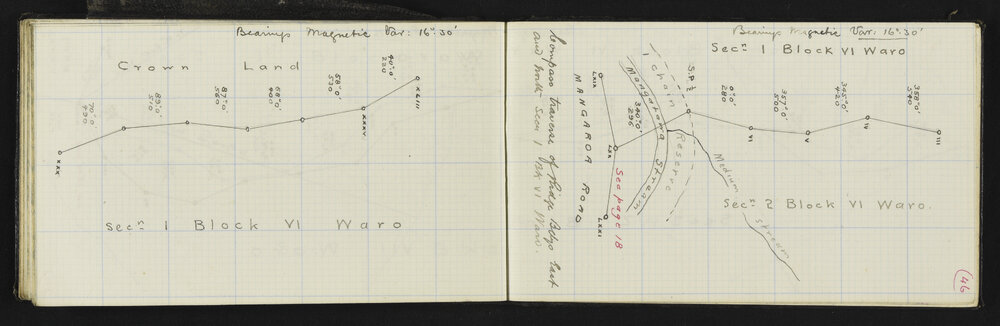 Bearings Magnetic Var: 16°.30'
Crown Land
70°0'
490
89°0'
510
87°0'
560
68°0'
400
58°0'
530
40°0'
220
XXX
XXXV
XLIII
Secn 1 Block VI Waro
Compass traverse of Ridge Bdys East
and North Secn 1 Blk VI Waro.
Bearings Magnetic Var: 16°.30'
Secn 1 Block VI Waro
LXIX
LXX
LXXI
MANGAROA ROAD
See page 18
340°0'
296
Mangatama Stream
1 chain Reserve
S.P.
0°0'
280
357°0'
500
345°0'
420
358°0'
540
VI
V
IV
III
Medium Stream
Secn 2 Block VI Waro.
46